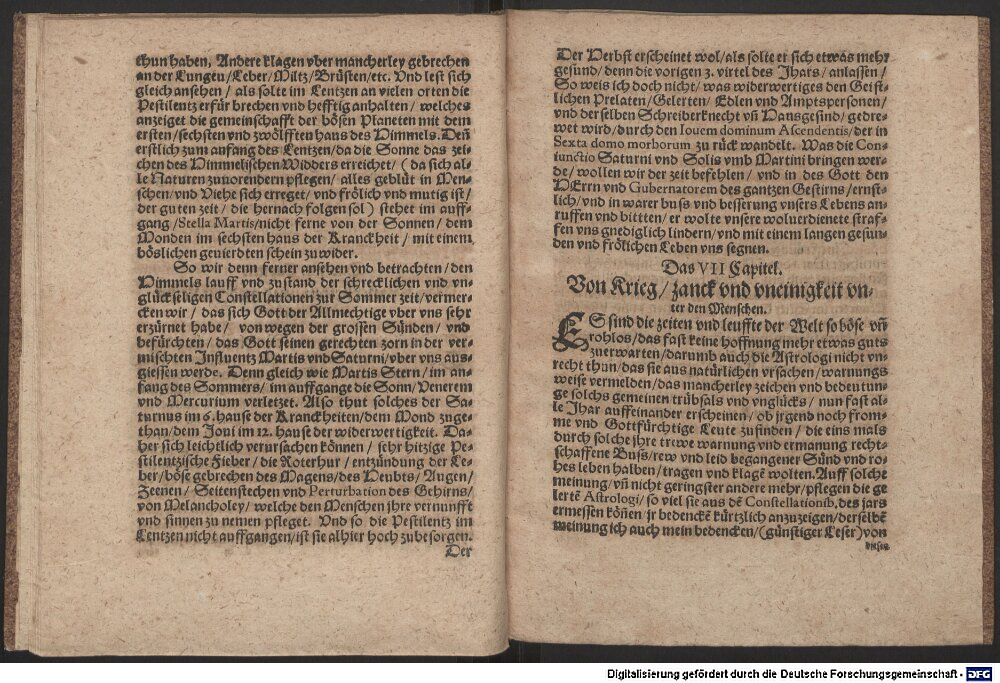 thun haben, Andere klagen vber mancherley gebrechen
an der Lungen/Leber/Miltz/Brüsten/etc. Vnd lest sich
gleich ansehen/ als solte im Lentzen an vielen orten die
Pestilentz erfür brechen vnd hefftig anhalten/ welches
anzeiget die gemeinschafft der bösen Planeten mit dem
ersten/sechsten vnd zwölfften haus des Himmels. Deñ
erstlich zum anfang des Lentzen/da die Sonne das zei-
chen des Himmelischen Widders erreichet/ (da sich al-
le Naturen zuuorendern pflegen/ alles geblüt in Men-
schen/vnd Viehe sich erreget/ vnd frölich vnd mutig ist/
der guten zeit/ die hernach folgen sol) stehet im auff-
gang/Stella Martis/nicht ferne von der Sonnen/ dem
Monden im sechsten haus der Kranckheit/ mit einem
böslichen geuierdten schein zu wider.
So wir denn ferner ansehen vnd betrachten/den
Himmels lauff vnd zustand der schrecklichen vnd vn-
glückseligen Constellationen zur Sommer zeit/vermer-
cken wir/ das sich Gott der Allmechtige vber vns sehr
erzürnet habe/ von wegen der grossen Sünden/ vnd
befürchten/ das Gott seinen gerechten zorn in der ver-
mischten Influentz Martis vnd Saturni/vber vns aus-
giessen werde. Denn gleich wie Martis Stern/ im an-
fang des Sommers/ im auffgange die Sonn/Venerem
vnd Mercurium verletzet. Also thut solches der Sa-
turnus im 6. hause der Kranckheiten/dem Mond zuge-
than/dem Joui im 12. hause der widerwertigkeit. Da-
her sich leichtlich verursachen können/ sehr hitzige Pe-
stilentzische Fieber/ die Roterhur/ entzündung der Le-
ber/böse gebrechen des Magens/des Heubts/Augen/
Zeenen/ Seitenstechen vnd Perturbation des Gehirns/
von Melancholey/ welche den Menschen jhre vernunfft
vnd sinnen zu nemen pfleget. Vnd so die Pestilentz im
Lentzen nicht auffgangen/ist sie alhier hoch zubesorgen.
Der
Der Herbst erscheinet wol/als solte er sich etwas mehr
gesund/denn die vorigen 3. virtel des Jhars/anlassen/
So weis ich doch nicht/ was widerwertiges den Geist-
lichen Prelaten/Gelerten/ Edlen vnd Amptspersonen/
vnd derselben Schreiberknecht vñ Hansgesind/ gedre-
wet wird/durch den Iouem dominum Ascendentis/der in
Sexta domo morborum zu rück wandelt. Was die Con-
iunctio Saturni vnd Solis vmb Martini bringen wer-
de/wollen wir der zeit befehlen/ vnd in des Gott den
HErrn vnd Gubernatorem des gantzen Gestirns/ernst-
lich/vnd in warer buss vnd besserung vnsers Lebens an-
ruffen vnd bittten/ er wolte vnsere woluerdienete straf-
fen vns gnediglich lindern/vnd mit einem langen gesun-
den vnd frölichen Leben vns segnen.
Das VII Capitel.
Von Krieg/ zanck vnd vneinigkeit vn-
ter den Menschen.
ES sind die zeiten vnd leuffte der Welt so böse vñ
rohlos/das fast keine hoffnung mehr etwas guts
zuerwarten/darumb auch die Astrologi nicht vn-
recht thun/das sie aus natürlichen vrsachen/warnungs
weise vermelden/das mancherley zeichen vnd bedeutun-
ge solchs gemeinen trübsals vnd vnglücks/ nun fast al-
le Jhar auffeinander erscheinen/ ob jrgend noch from-
me vnd Gottfürchtige Leute zufinden/ die eins mals
durch solche jhre trewe warnung vnd ermanung recht-
schaffene Buss/rew vnd leid begangener Sünd vnd ro-
hes leben halben/tragen vnd klagẽ wolten. Auff solche
meinung/vñ nicht geringster andere mehr/pflegen die ge
lertẽ Astrologi/so viel sie aus dẽ Constellationib. des jars
ermessen köñen/jr bedenckẽ kürtzlich anzuzeigen/derselbẽ
meinung ich auch mein bedencken/(günstiger Leser)von
dieser
Digitalisierung gefördert durch die Deutsche Forschungsgemeinschaft - DFG